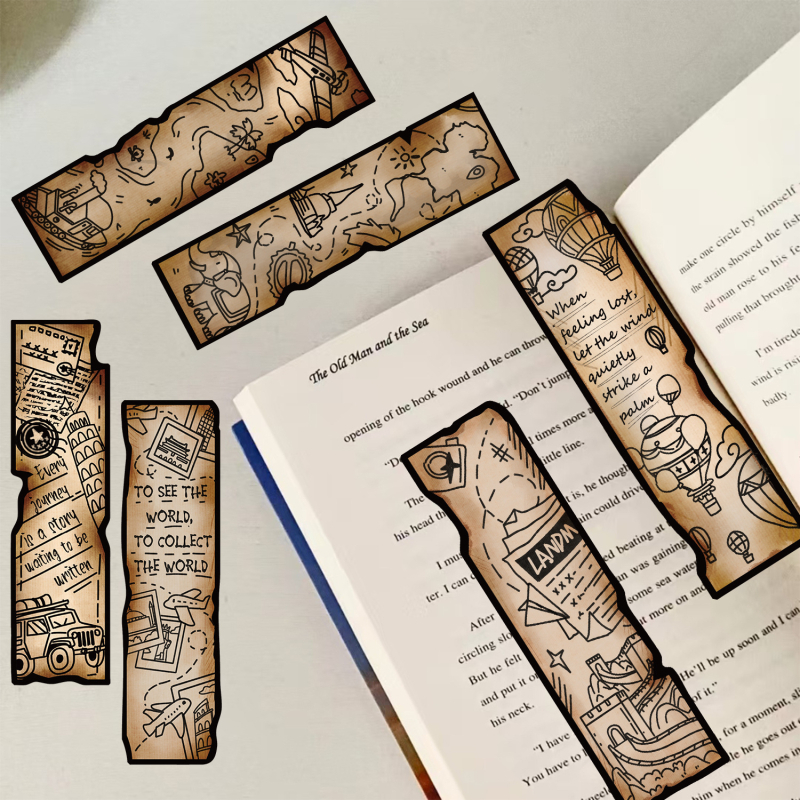 Every
journey
is a story
waiting to be
written
TO SEE THE
WORLD,
TO COLLECT
THE WORLD
When
feeling lost,
let the wind
quietly
strike a
palm
LANDM
The Old Man and the Sea
opening of the hook wound and he can throw
"Don't jump
times more a
little line.
The
is, he though
his head
pain could drive
I mu
ed beating at
ter. I can
was gaining
some sea water
After
more on and
circling slo
But he felt
He'll be up soon and I can
and put it o
of it."
his neck.
"I have
for a moment, sl
You have to
he goes out
him when he comes in
make one circle by himself
the strain showed the fish
old man rose to his fe
pulling that brought
I'm tired
wind is risi
badly.